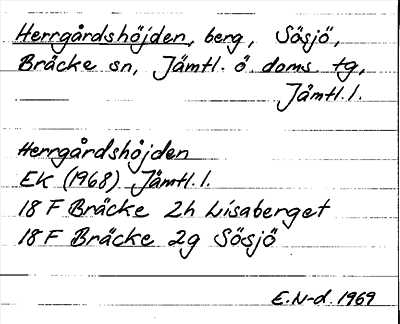 Herrgårdshöjden, berg, Sösjö,
Bräcke sn, Jämtl. ö. doms. tg,
Jämtl. l.
Herrgårdshöjden
EK (1968) Jämtl. l.
18 F Bräcke 2h Lisaberget
18 F Bräcke 2g Sösjö
E. N-d. 1969